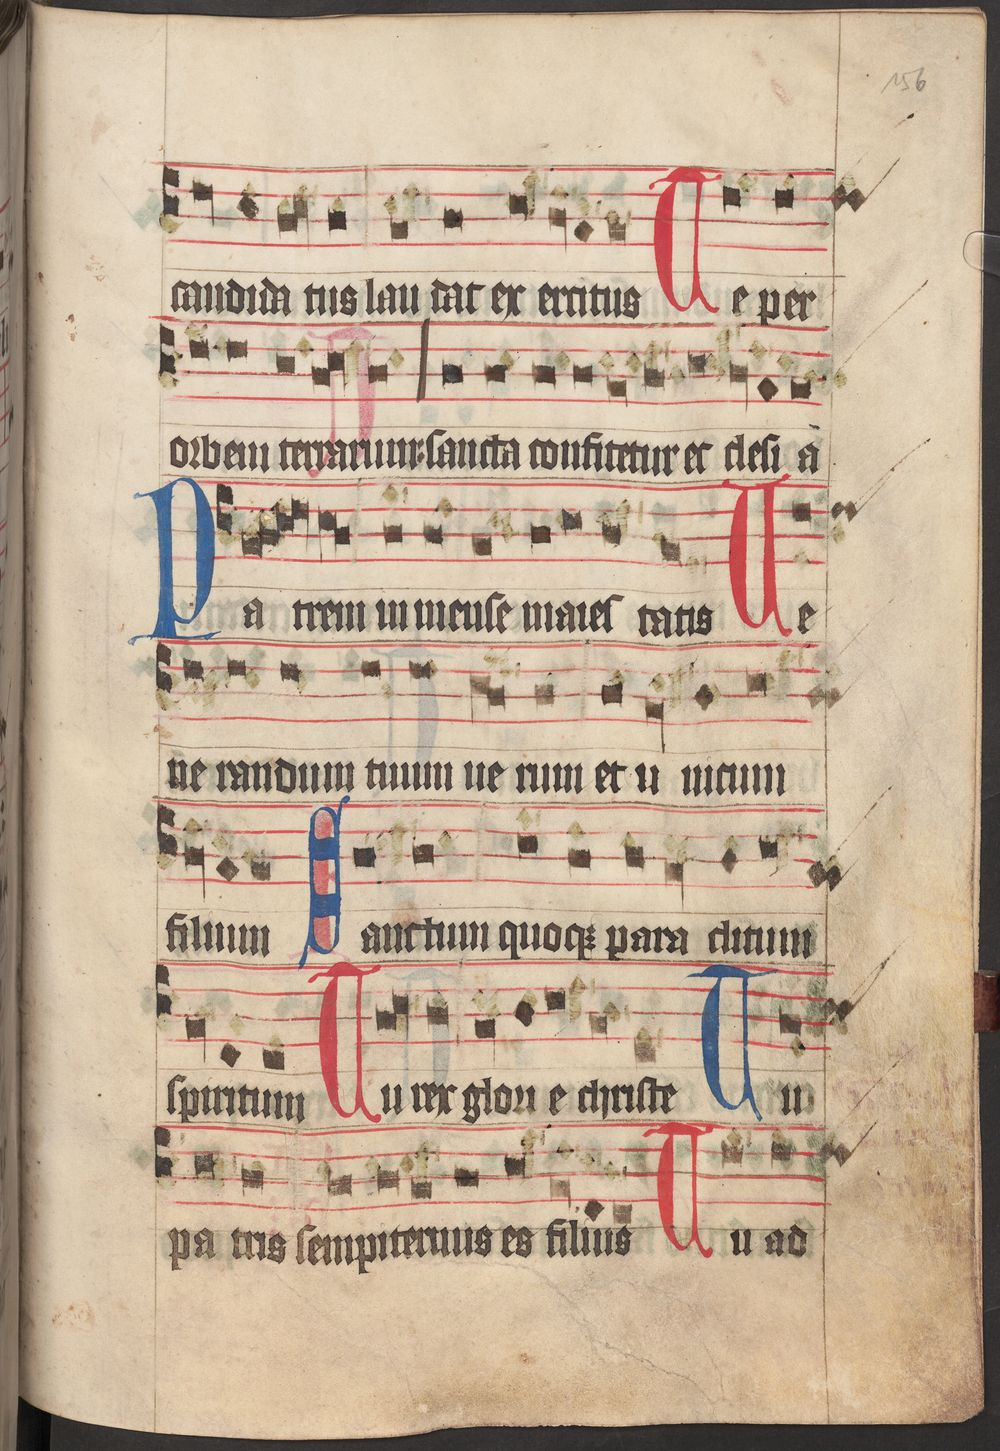 156
candida tus lau dat ex ercitus Te per
orbem terrarum: sancta confitetur ec clesi a
Pa trem in mense maies tatis Ue
ne randum tuum ue rum et u nicum
filium Sanctum quoq; para clitum
spiritum Tu rex glori e christe Tu
pa tris sempiternus es filius Tu ad